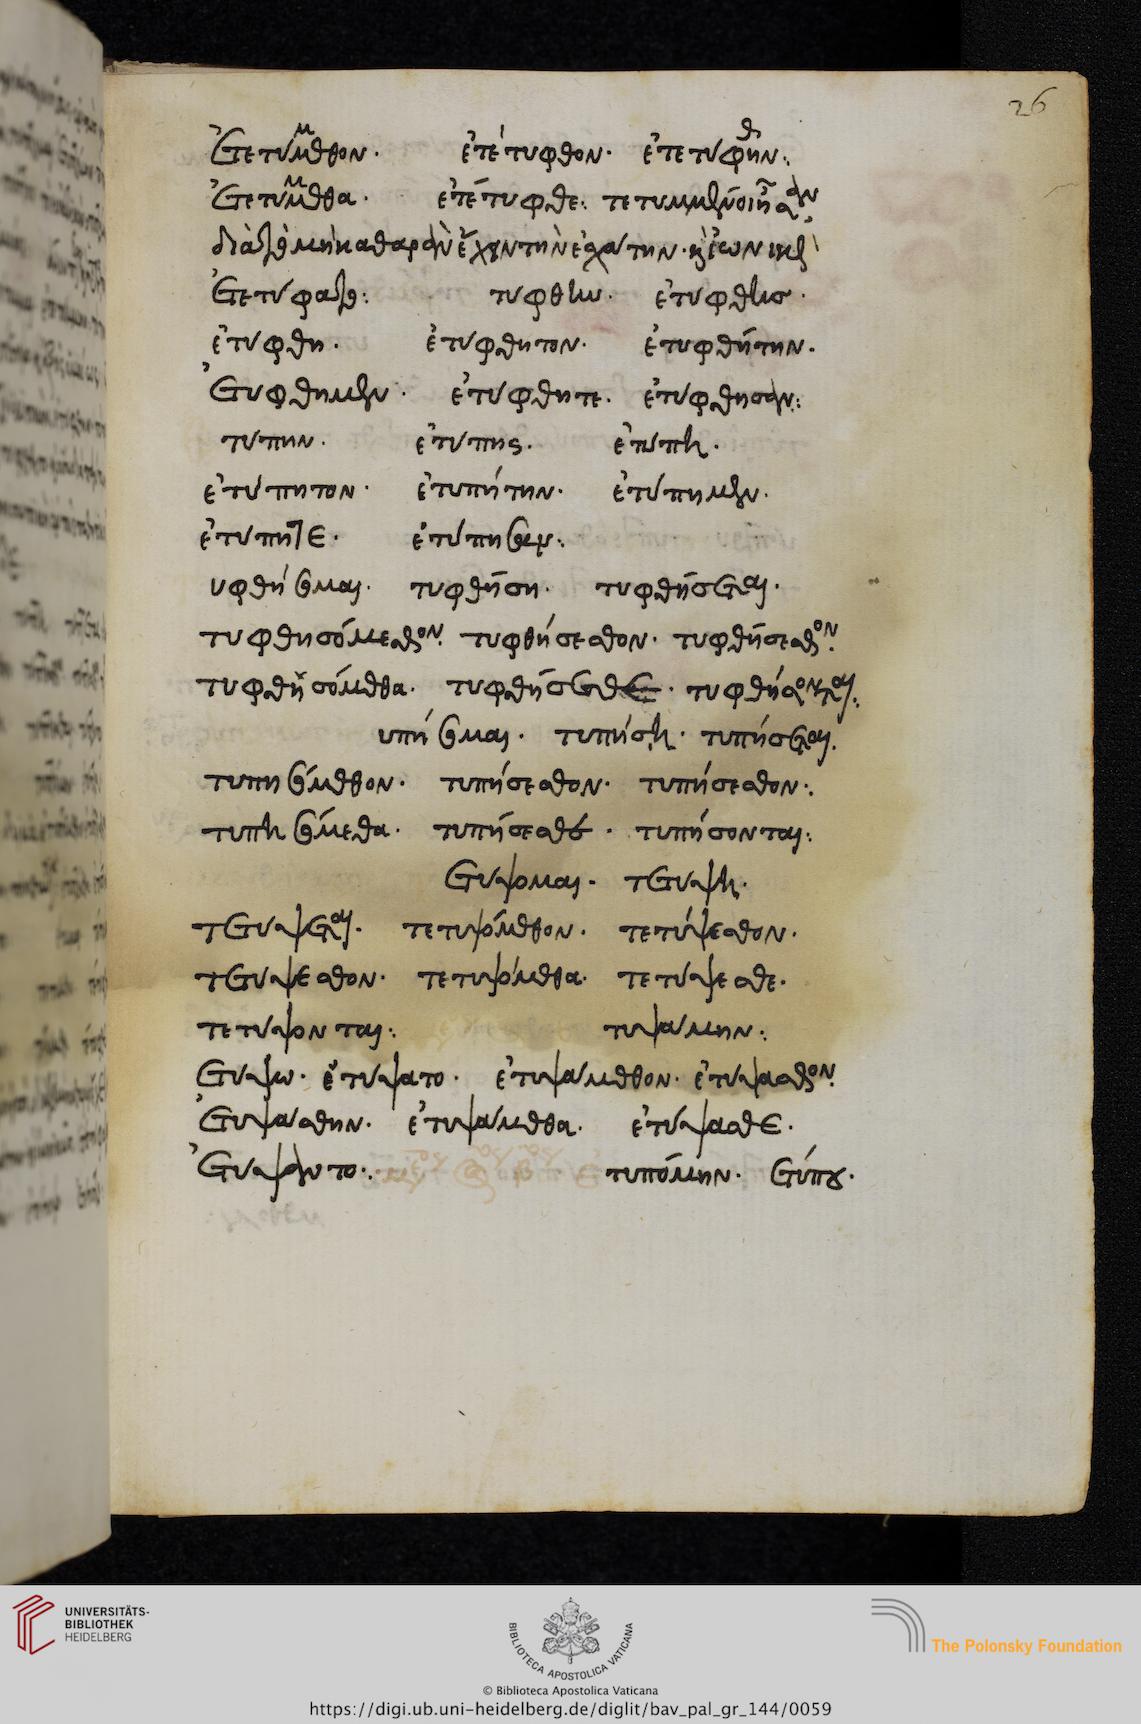 26
ἐτετύμμεθον. ἐτέτυφθον. ἐτετύφθην:
ἐτετύμμεθα. ἐτέτυφθε: τετυμμένοι ἦσαν
διὰ τὸ μὴ καθαρὰν ἔχειν τὴν
ἐτετύφατο: τύφθην. ἐτύφθης.
ἐτύφθη. ἐτύφθητον. ἐτυφθήτην.
ἐτύφθημεν. ἐτύφθητε. ἐτύφθησαν:
τύπην. ἐτύπης. ἐτύπη.
ἐτύπητον. ἐτυπήτην. ἐτύπημεν.
ἐτύπητε. ἐτύπησαν:
υφθήσομαι. τυφθήση. τυφθήσεται.
τυφθησόμεθον. τυφθήσεσθον. τυφθήσεσθον.
τυφθησόμεθα. τυφθήσεσθε. τυφθήσονται:
υπήσομαι. τυπήση. τυπήσεται.
τυπησόμεθον. τυπήσεσθον. τυπήσεσθον:
τυπησόμεθα. τυπήσεσθε. τυπήσονται:
ετύψομαι. τετύψη.
τετύψεται. τετυψόμεθον. τετύψεσθον.
τετύψεσθον. τετυψόμεθα. τετύψεσθε.
τετύψονται: τυψάμην:
ἐτύψω. ἐτύψατο. ἐτυψάμεθον. ἐτύψασθον.
ἐτυψάσθην. ἐτυψάμεθα. ἐτύψασθε.
ἐτύψαντο: τυπόμην. ἐτύπου.
UNIVERSITÄTS-
BIBLIOTHEK
HEIDELBERG
BIBLIOTECA APOSTOLICA VATICANA
The Polonsky Foundation
© Biblioteca Apostolica Vaticana
https://digi.ub.uni-heidelberg.de/diglit/bav_pal_gr_144/0059